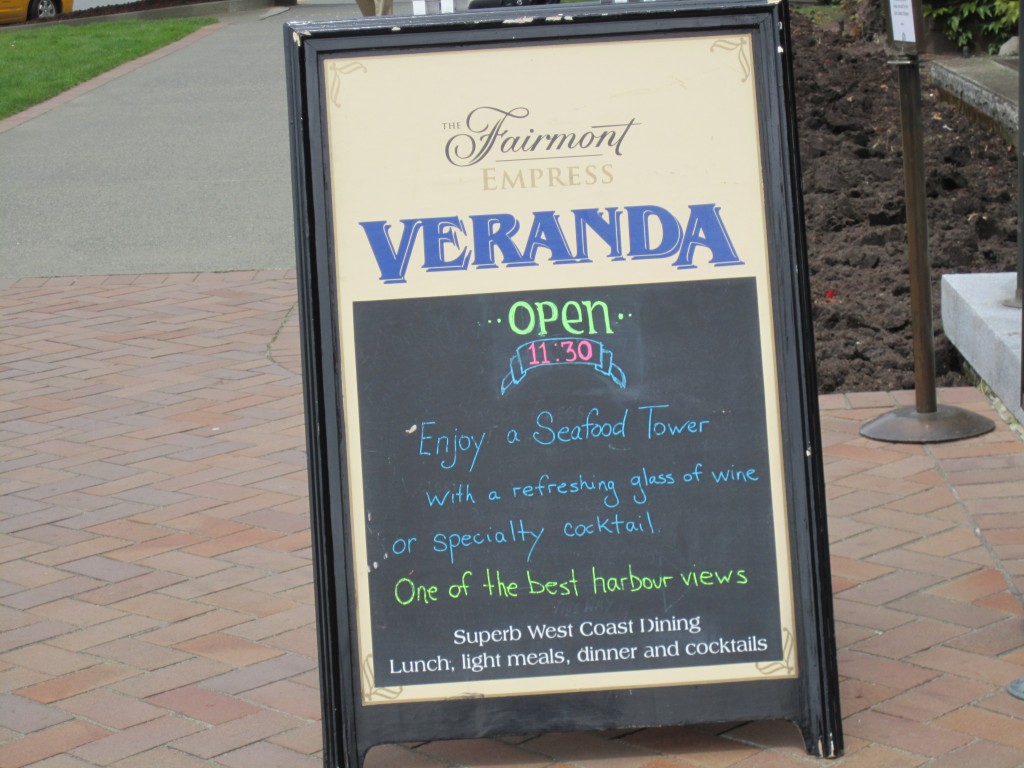 THE Fairmont
EMPRESS
VERANDA
··open··
11:30
Enjoy a Seafood Tower
with a refreshing glass of wine
or specialty cocktail.
One of the best harbour views
Superb West Coast Dining
Lunch, light meals, dinner and cocktails